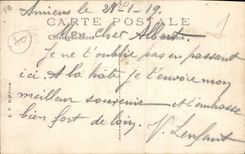 Amiens le 21-1-19.
CARTE POSTALE
Mon Cher Albert.
Je ne t'oublie pas en passant
ici. A la hâte je t'envoie mon
meilleur souvenir et t'embrasse
bien fort de loin.
V. Lenfant